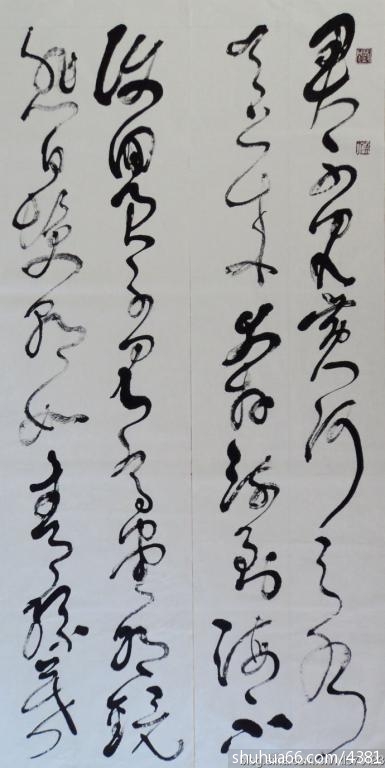 君不見黄河之水
天上来奔流到海不
復回君不見高堂明鏡
悲白髮朝如青絲暮
shuhua66.com/4381